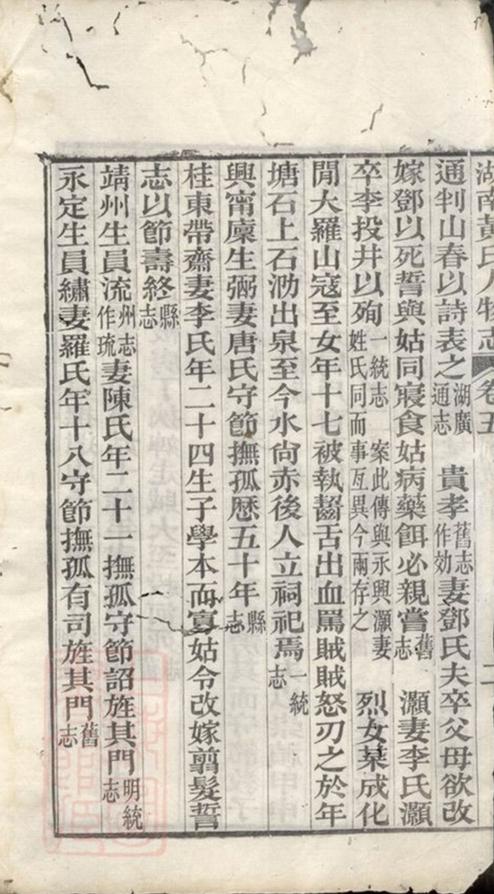 湖南黃氏人物志 卷五
通判山春以詩表之湖廣通志 貴孝舊志作効妻鄧氏夫卒父母欲改
嫁鄧以死誓與姑同寢食姑病藥餌必親嘗舊志 灝妻李氏灝
卒李投井以殉一統志 案此傳與永興灝妻姓氏同而事亙異今兩存之 烈女某成化
閒大羅山寇至女年十七被執齧舌出血罵賊賊怒刃之於年
塘石上石泐出泉至今水尙赤後人立祠祀焉一統志
興甯廩生弼妻唐氏守節撫孤歷五十年縣志
桂東帶齋妻李氏年二十四生子學本而寡姑令改嫁翦髮誓
志以節壽終縣志
靖州生員流州志作琉妻陳氏年二十一撫孤守節詔旌其門明統志
永定生員繡妻羅氏年十八守節撫孤有司旌其門舊志